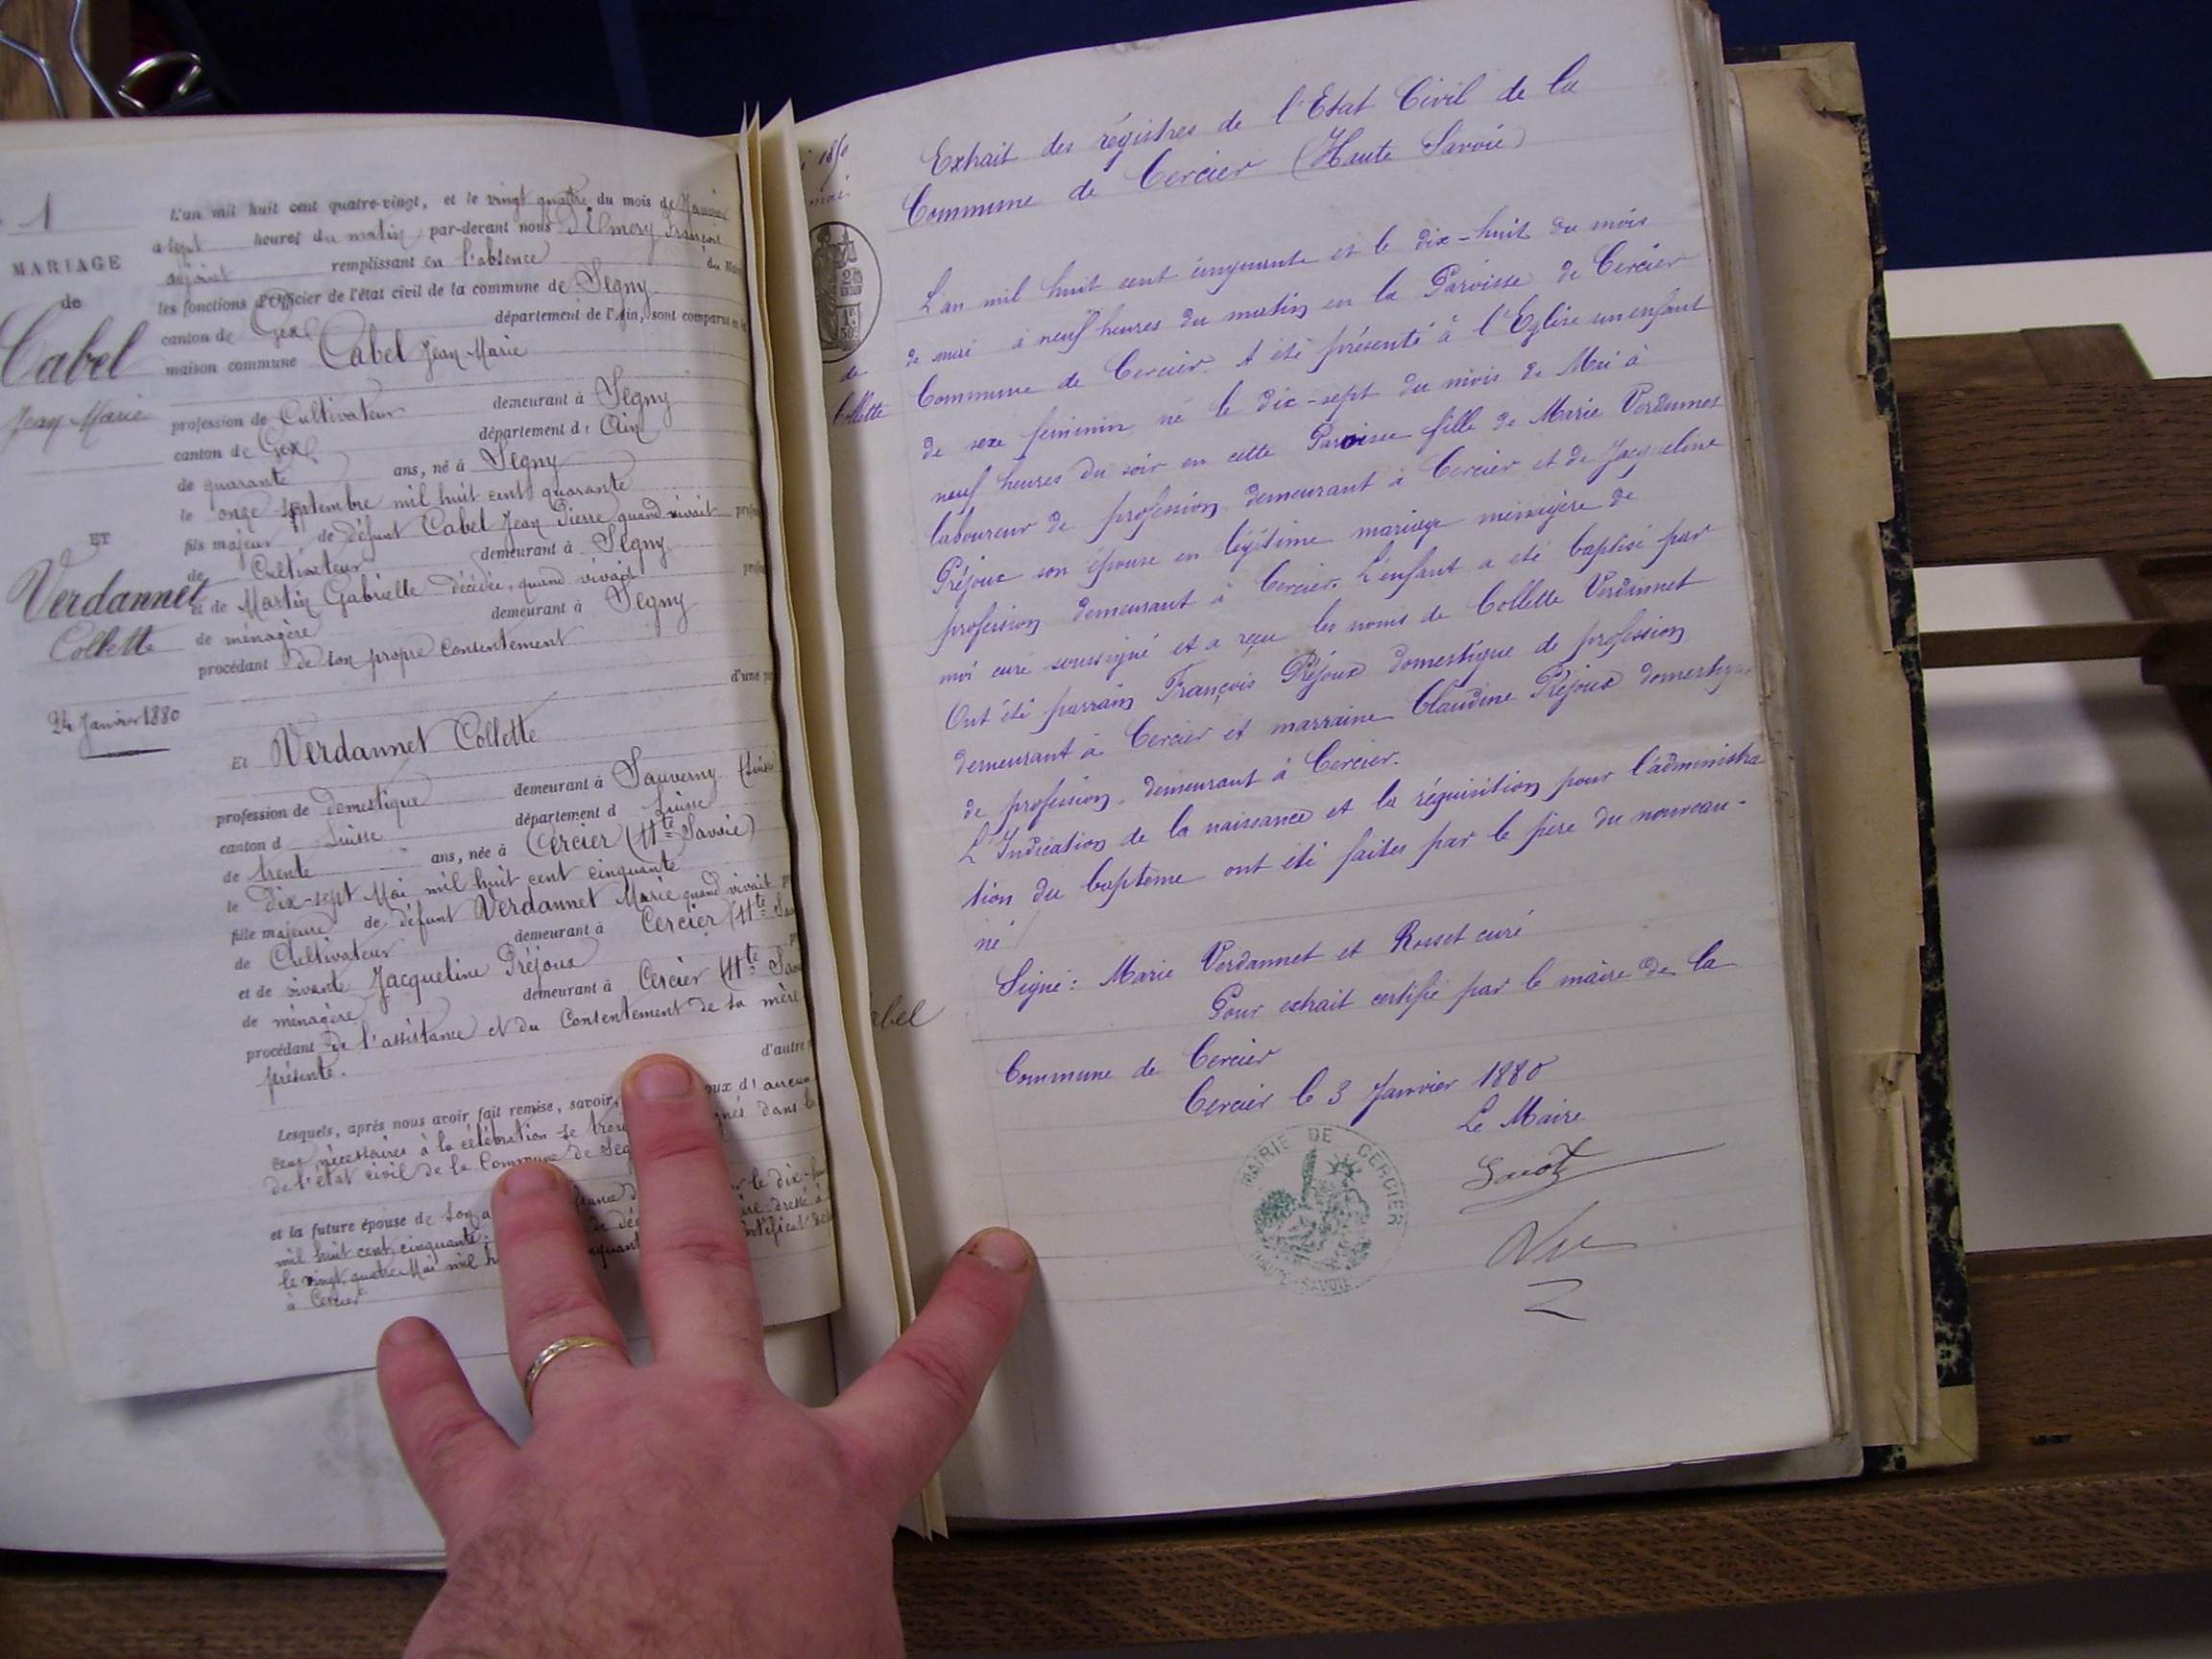 1
MARIAGE
de
Cabel
Jean Marie
ET
Verdannet
Collette
24 Janvier 1880
L'an mil huit cent quatre-vingt, et le vingt quatre du mois de Janvier
à sept heures du matin par-devant nous D'Elmery François
adjoint remplissant en l'absence du Maire
les fonctions d'Officier de l'état civil de la commune de Segny
canton de Gex département de l'Ain, sont comparus en la
maison commune Cabel Jean Marie
profession de Cultivateur demeurant à Segny
canton de Gex département d Ain
de quarante ans, né à Segny
le onze septembre mil huit cent quarante
fils majeur de défunt Cabel Jean Pierre quand vivait
de Cultivateur demeurant à Segny
et de Martin Gabrielle décédée, quand vivait
de ménagère demeurant à Segny
procédant de son propre consentement
d'une
Et Verdannet Collette
profession de domestique demeurant à Sauverny (Suisse
canton d Suisse département d Suisse
de trente ans, née à Cercier (Hte Savoie)
le Dix-sept Mai mil huit cent cinquante
fille majeure de défunt Verdannet Marie quand vivait
de Cultivateur demeurant à Cercier (Hte
et de vivante Jacqueline Préjoux
de ménagère demeurant à Cercier (Hte
procédant de l'assistance et du Consentement de sa mère
présente.
d'autre
Lesquels, après nous avoir fait remise, savoir,
nécessaires à la célébration se dans
de l'état civil de la Commune de
et la future épouse de son le dix
mil huit cent cinquante dressé à
le vingt quatre Mai mil certificat
à Cercier
de
Collette
Extrait des régistres de l'Etat Civil de la
Commune de Cercier (Haute Savoie)
L'an mil huit cent cinquante et le dix-huit du mois
de mai à neuf heures du matin en la Paroisse de Cercier
Commune de Cercier. A été présenté à l'Eglise un enfant
de sexe féminin né le dix-sept du mois de Mai à
neuf heures du soir en cette Paroisse fille de Marie Verdannet
laboureur de profession demeurant à Cercier et de Jacqueline
Préjoux son épouse en légitime mariage ménagère de
profession demeurant à Cercier. L'enfant a été baptisé par
moi curé soussigné et a reçu les noms de Collette Verdannet
Ont été parrain François Préjoux domestique de profession
demeurant à Cercier et marraine Claudine Préjoux domestique
de profession, demeurant à Cercier.
L'Indication de la naissance et la réquisition pour l'administra
tion du baptême ont été faites par le père du nouveau-
né
Signé: Marie Verdannet et Rosset curé
Pour extrait certifié par le maire de la
Commune de Cercier
Cercier le 3 Janvier 1880
Le Maire
MAIRIE DE CERCIER
HAUTE-SAVOIE